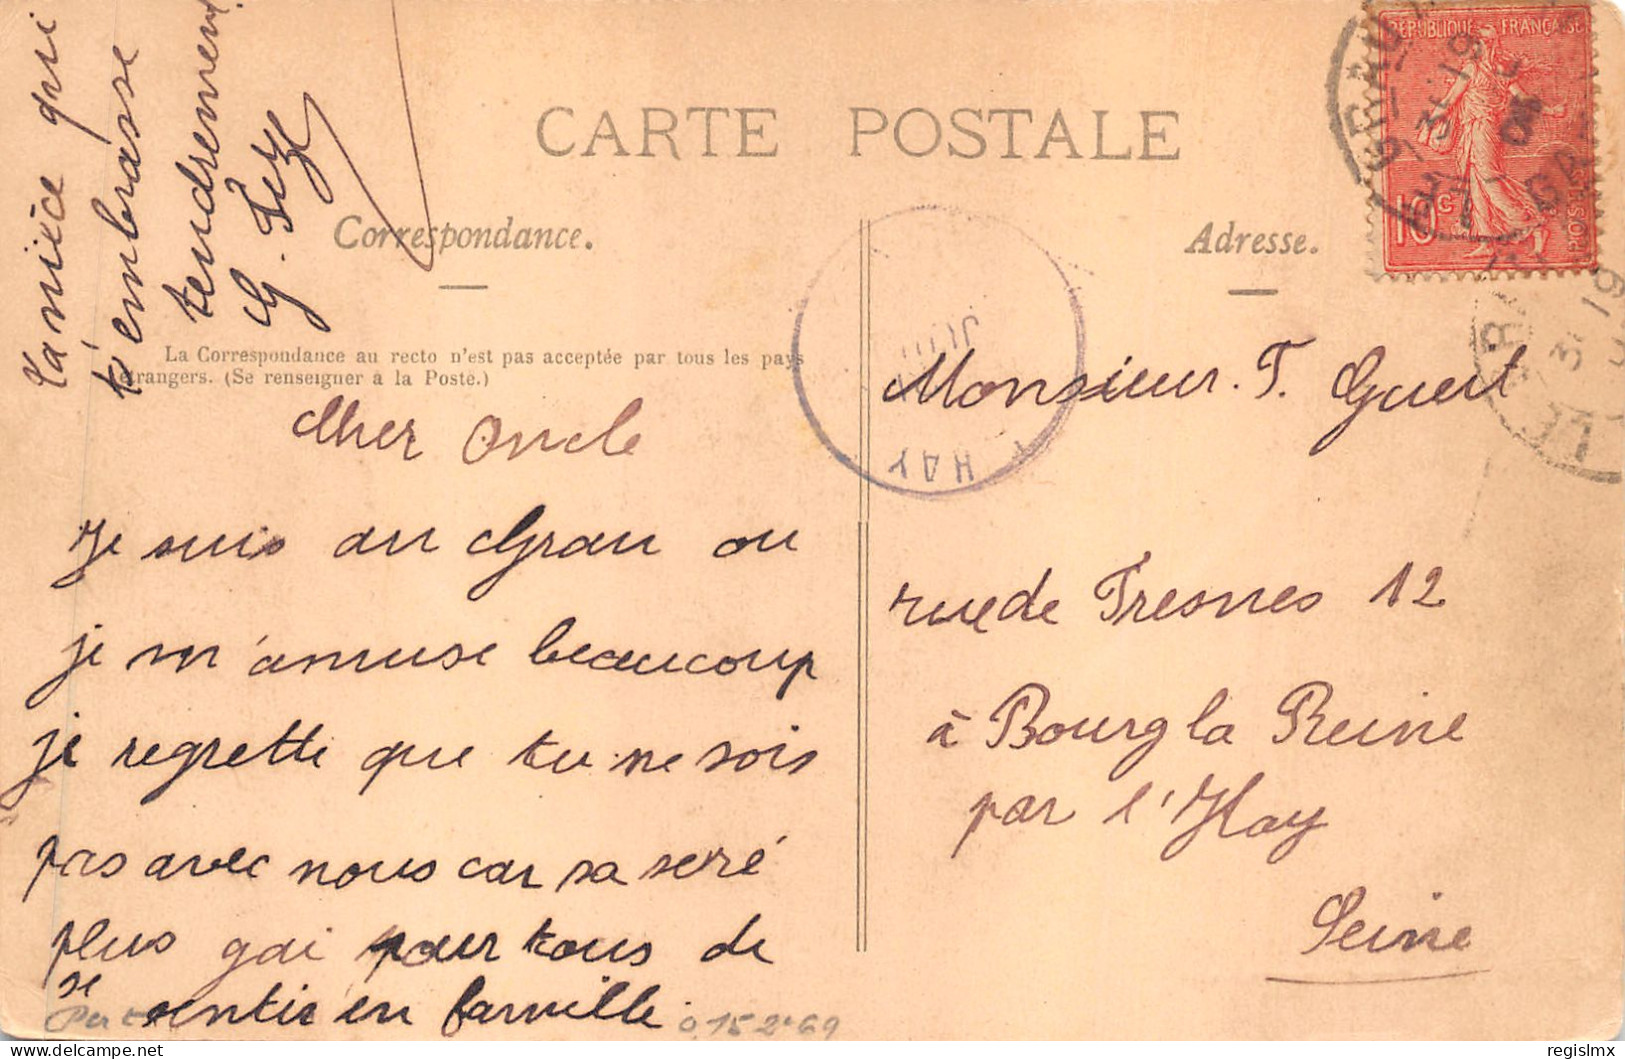 CARTE POSTALE
Correspondance.
La Correspondance au recto n'est pas acceptée par tous les pays
étrangers. (Se renseigner à la Poste.)
Cher Oncle
Je suis au Grau ou
je m'amuse beaucoup
je regrette que tu ne sois
pas avec nous car sa seré
plus gai pour tous de
se
sentir en famille.
Ta nièce qui
t'embrasse
tendrement
G.
Adresse.
Monsieur. T. Guert
rue de Fresnes 12
à Bourg la Reine
par l'Hay
Seine
REPUBLIQUE FRANÇAISE
10c
HAY
0,15 2e 69
regislmx